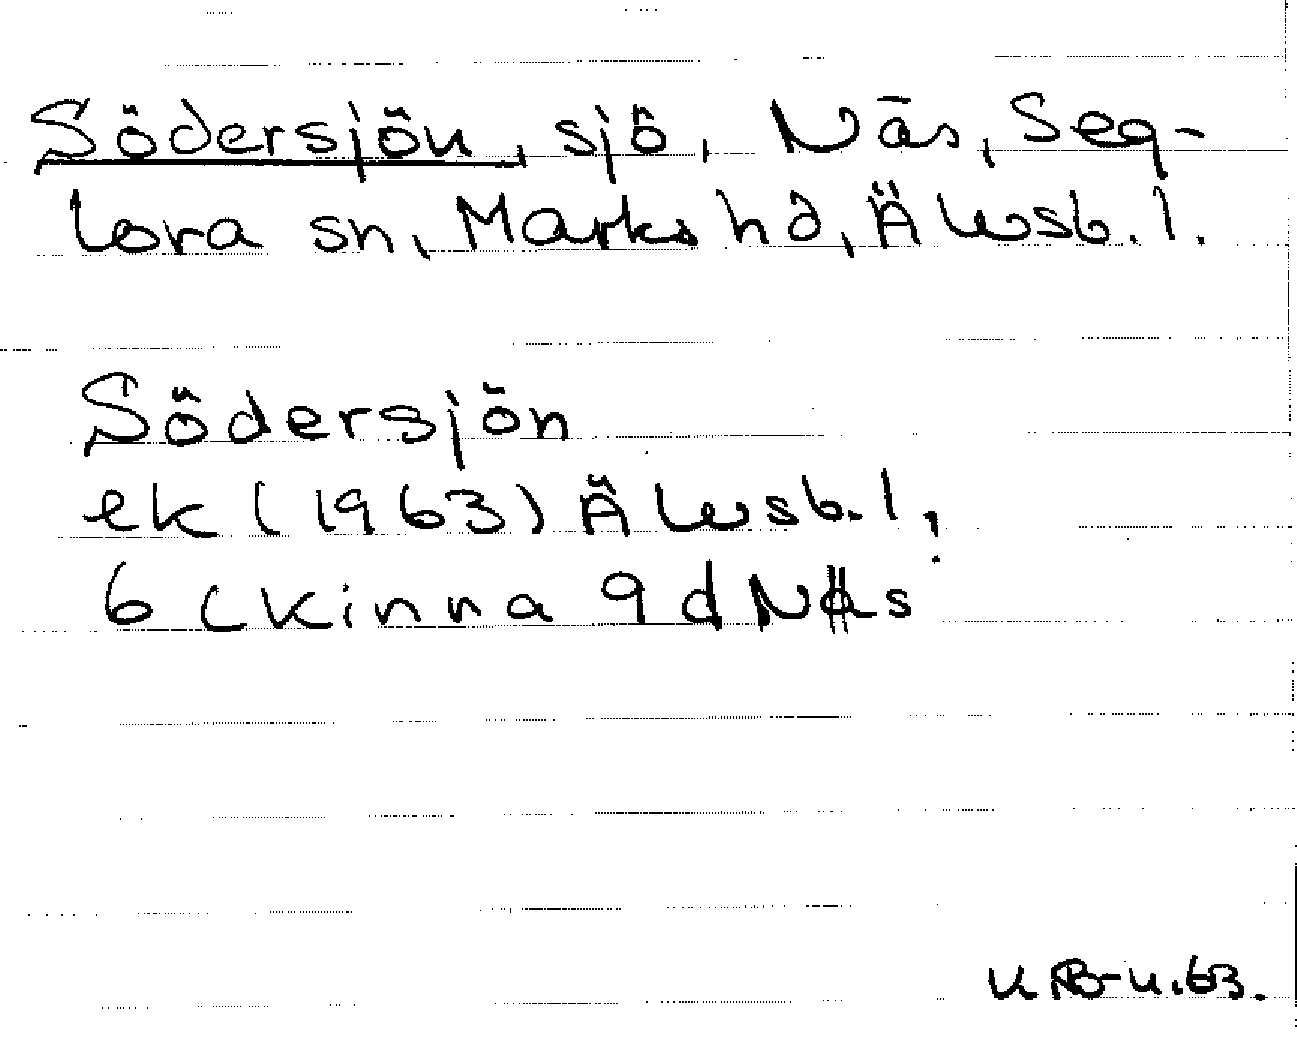 Södersjön, sjö, Näs, Seg-
lora sn, Marks hd, Älvsb. l.
Södersjön
ek (1963) Älvsb. l,
6 C Kinna 9 d Näs